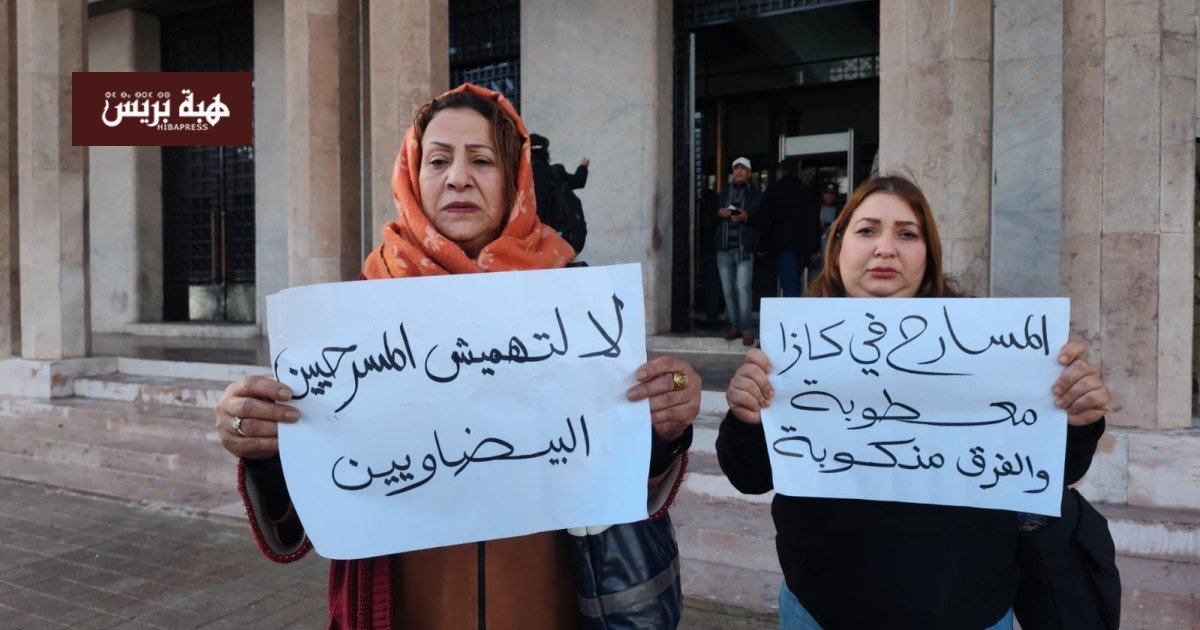 هبة بريس
HIBAPRESS
لا لتهميش المسرحيين
البيضاويين
المسارح في كازا
معطوبة
والفرق مذكوبة